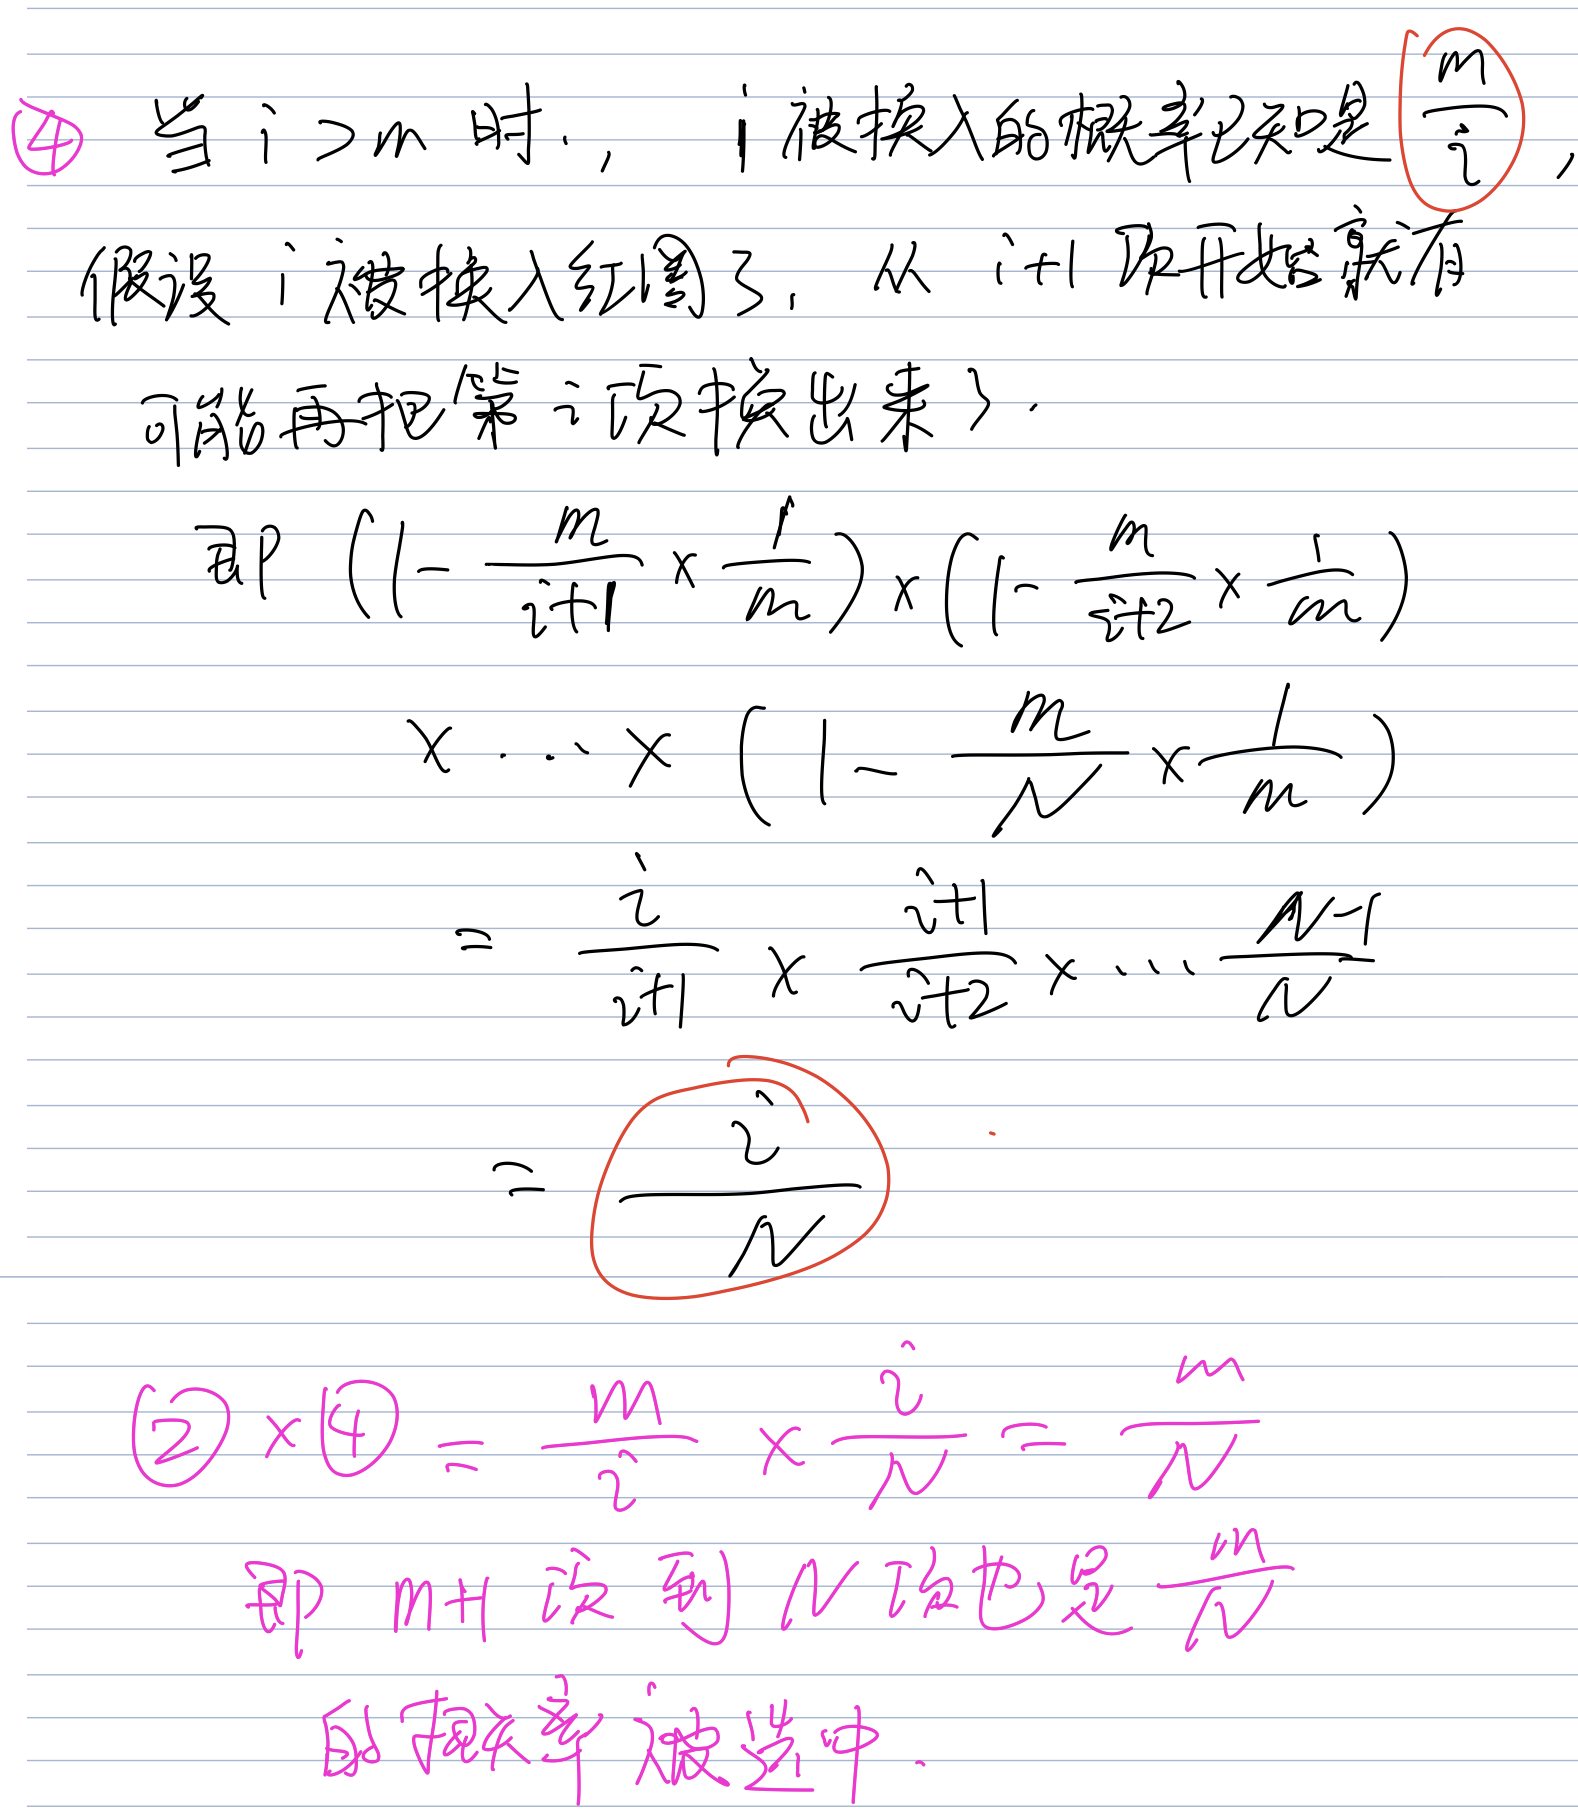 ④ 当 i > m 时, i 被换入的概率已知是 m/i,
假设 i 被换入红圈了, 从 i+1 项开始就有
可能再把第 i 项换出来了.
即 (1 - m/(i+1) × 1/m) × (1 - m/(i+2) × 1/m)
× ... × (1 - m/N × 1/m)
= i/(i+1) × (i+1)/(i+2) × ... (N-1)/N
= i/N
② × ④ = m/i × i/N = m/N
即 m+1 项到 N 项也是 m/N
的概率被选中.